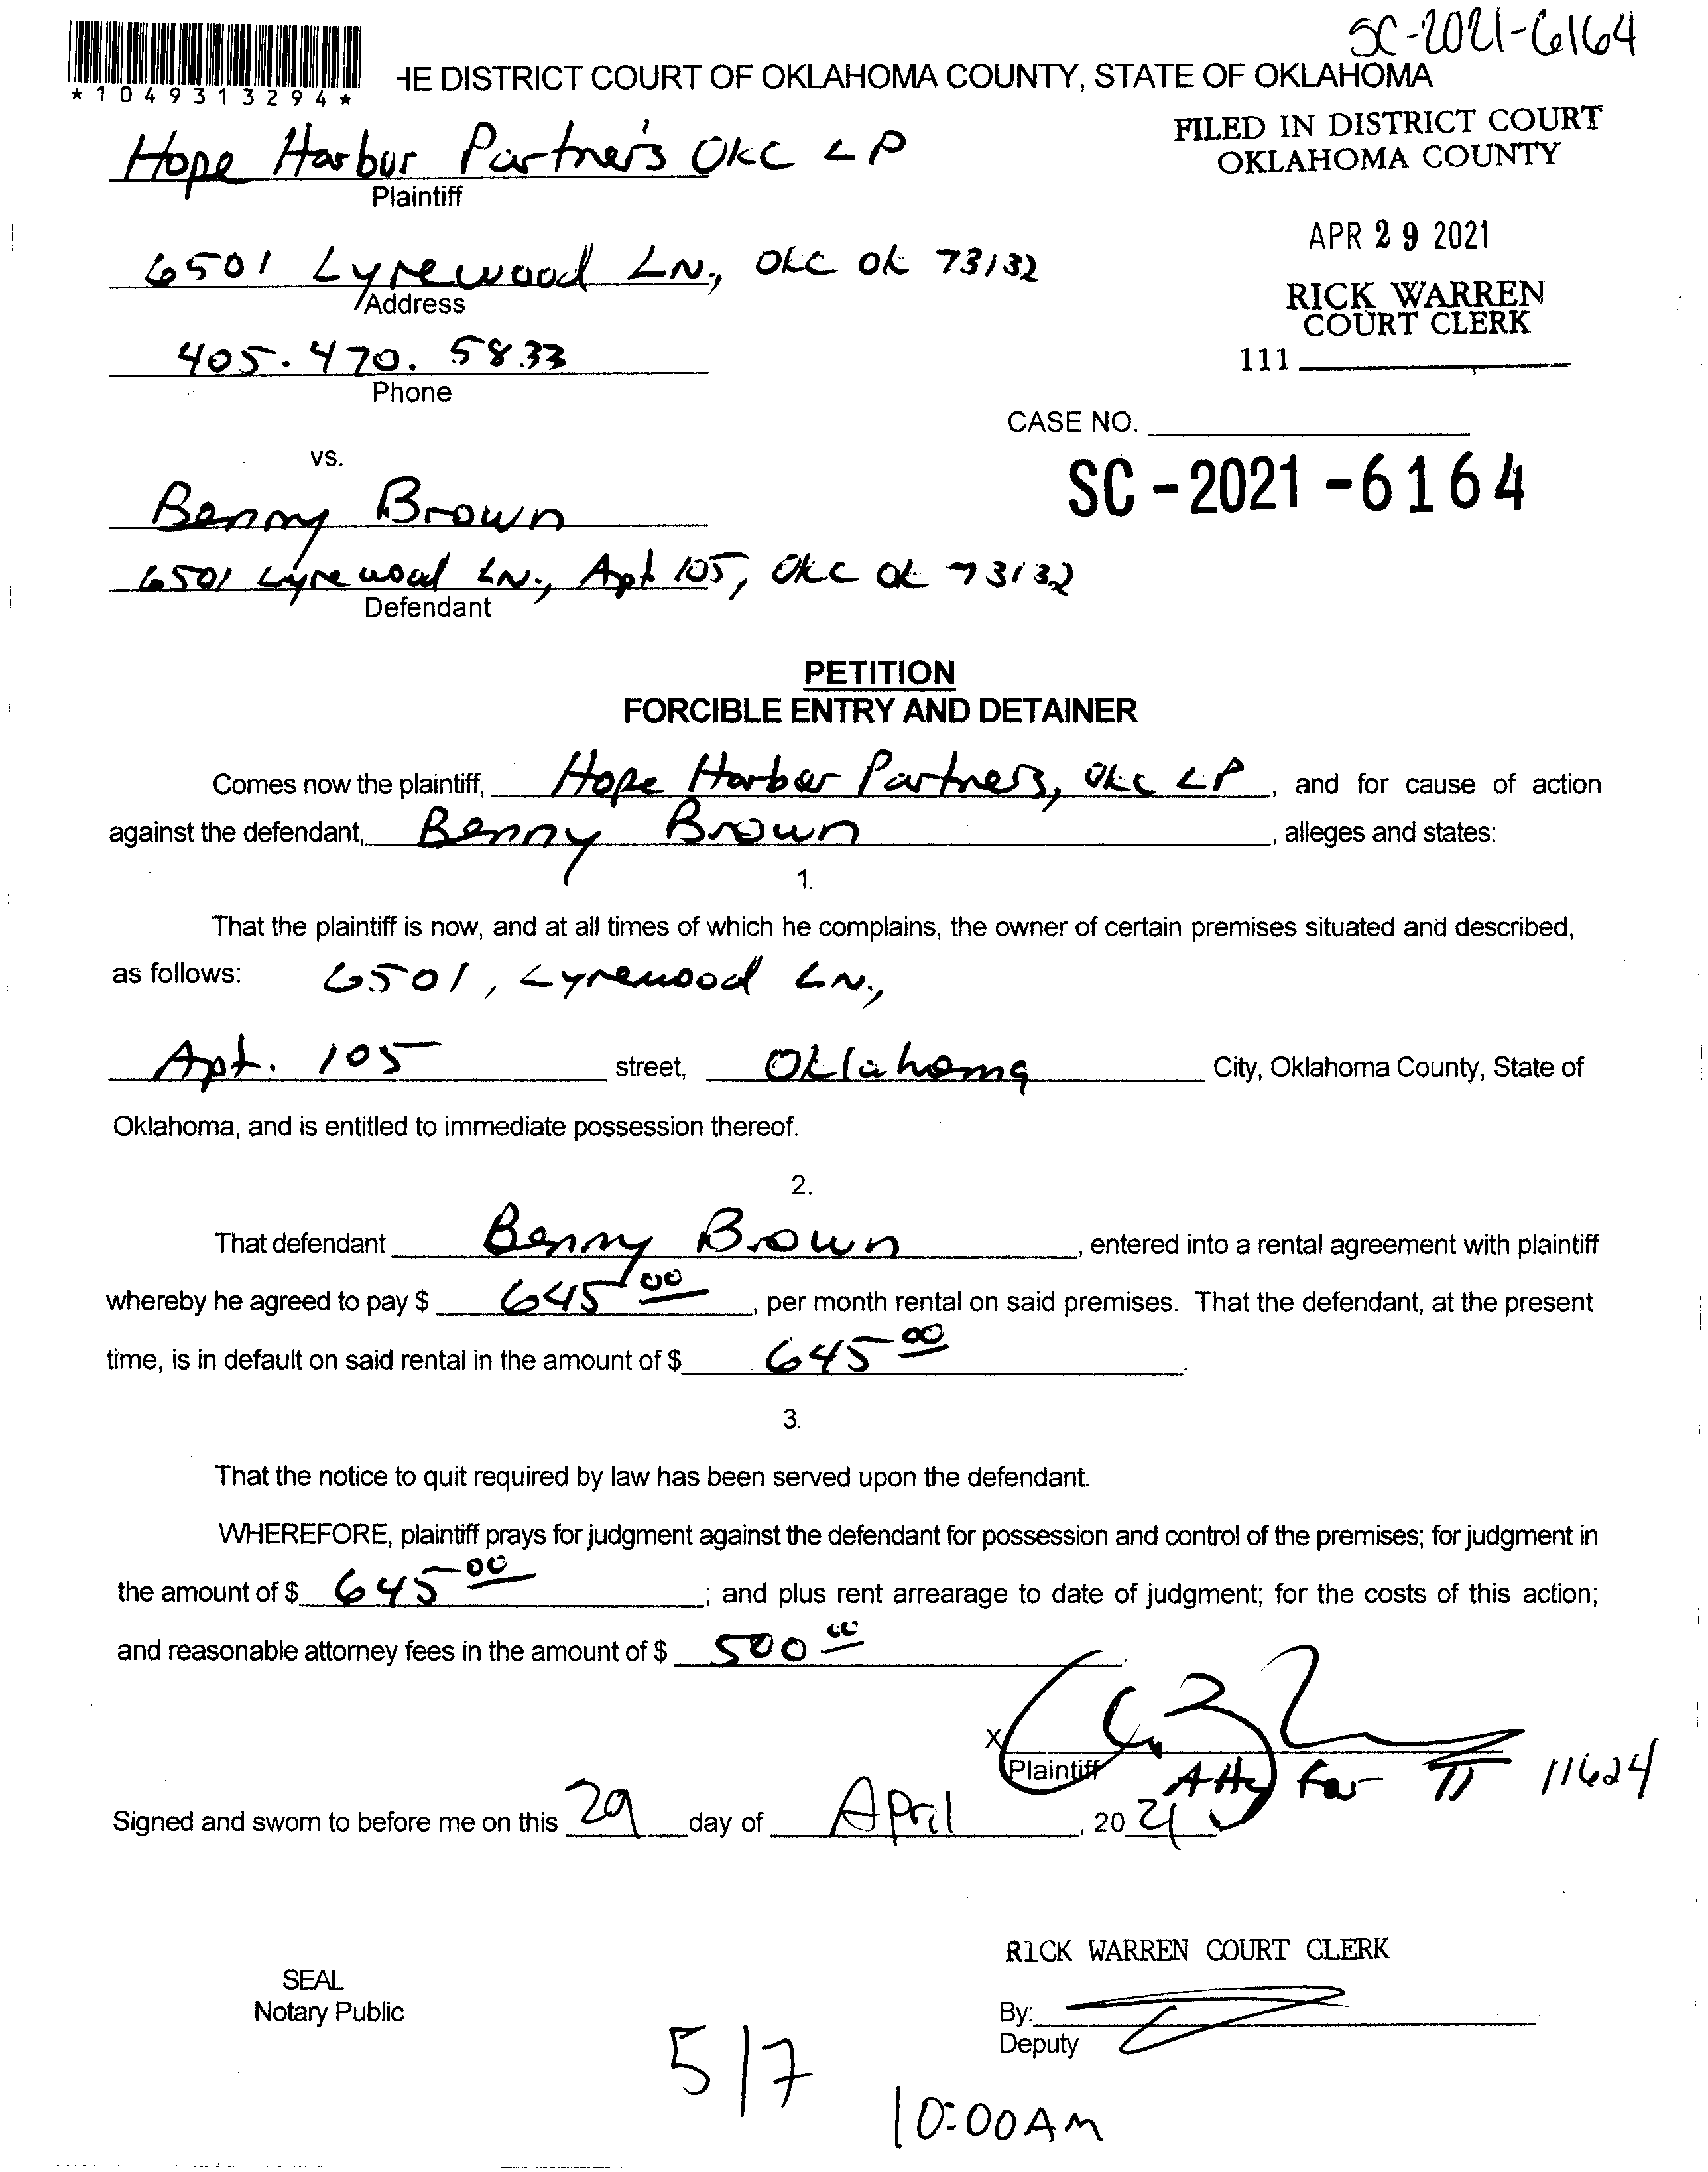 SC-2021-6164
*1049313294*
HE DISTRICT COURT OF OKLAHOMA COUNTY, STATE OF OKLAHOMA
Hope Harbor Partners OKC LP
Plaintiff
FILED IN DISTRICT COURT
OKLAHOMA COUNTY
APR 29 2021
6501 Lyrewood LN., OKC OK 73132
Address
RICK WARREN
COURT CLERK
405.470.5833
Phone
111
CASE NO.
SC-2021-6164
vs.
Benny Brown
6501 Lyrewood LN., Apt 105, OKC OK 73132
Defendant
PETITION
FORCIBLE ENTRY AND DETAINER
Comes now the plaintiff, Hope Harbor Partners, OKC LP, and for cause of action
against the defendant, Benny Brown, alleges and states:
1.
That the plaintiff is now, and at all times of which he complains, the owner of certain premises situated and described,
as follows: 6501, Lyrewood LN.,
Apt. 105 street, Oklahoma City, Oklahoma County, State of
Oklahoma, and is entitled to immediate possession thereof.
2.
That defendant Benny Brown, entered into a rental agreement with plaintiff
whereby he agreed to pay $ 645 00, per month rental on said premises. That the defendant, at the present
time, is in default on said rental in the amount of $ 645 00.
3.
That the notice to quit required by law has been served upon the defendant.
WHEREFORE, plaintiff prays for judgment against the defendant for possession and control of the premises; for judgment in
the amount of $ 645 00; and plus rent arrearage to date of judgment; for the costs of this action;
and reasonable attorney fees in the amount of $ 500 00.
X
Plaintiff Atty for π 11624
Signed and sworn to before me on this 29 day of April, 2021
RICK WARREN COURT CLERK
SEAL
Notary Public
By:
Deputy
5/7
10:00AM